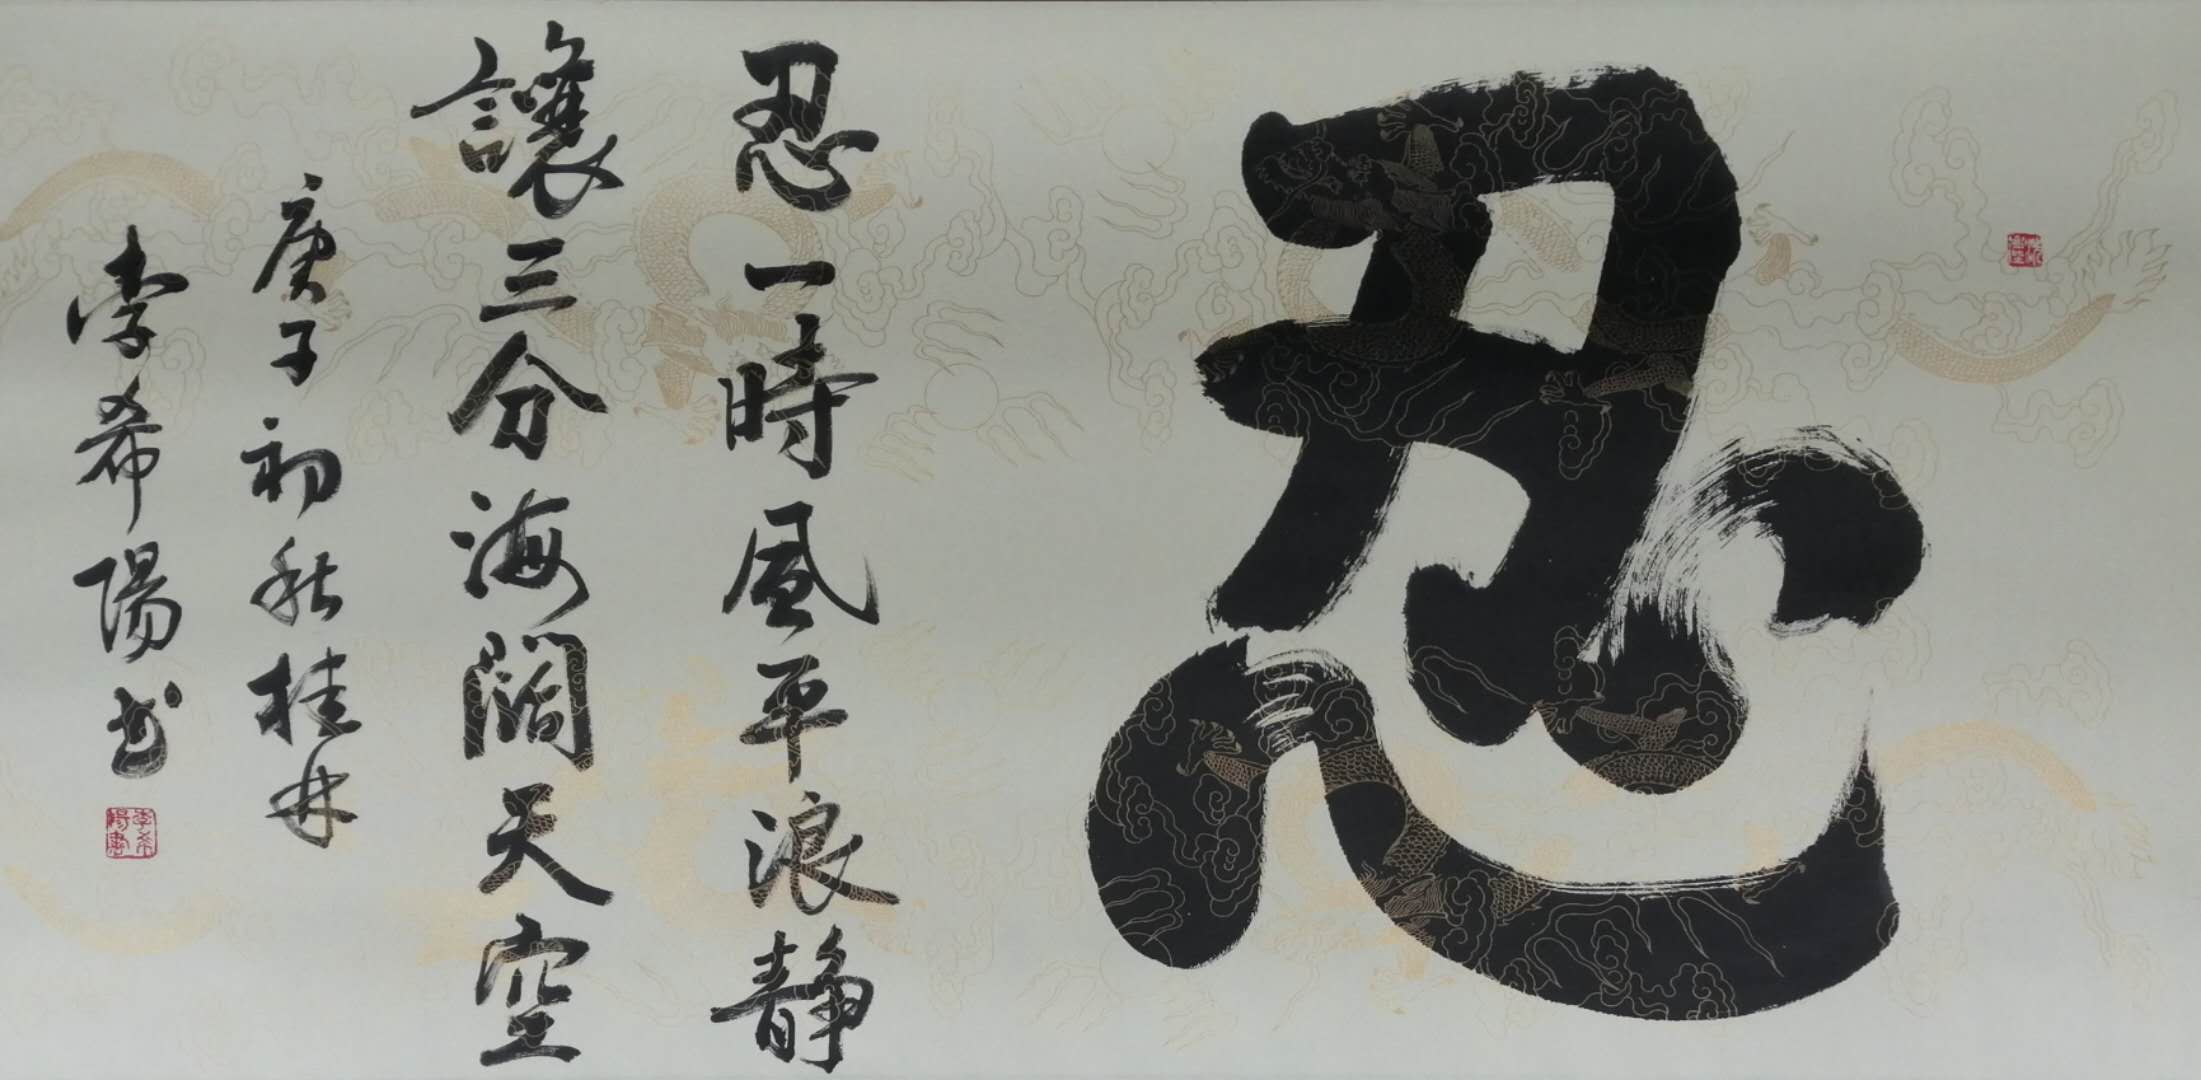 忍
忍一時風平浪静
讓三分海闊天空
庚子初秋桂林
李希陽书
李希陽書